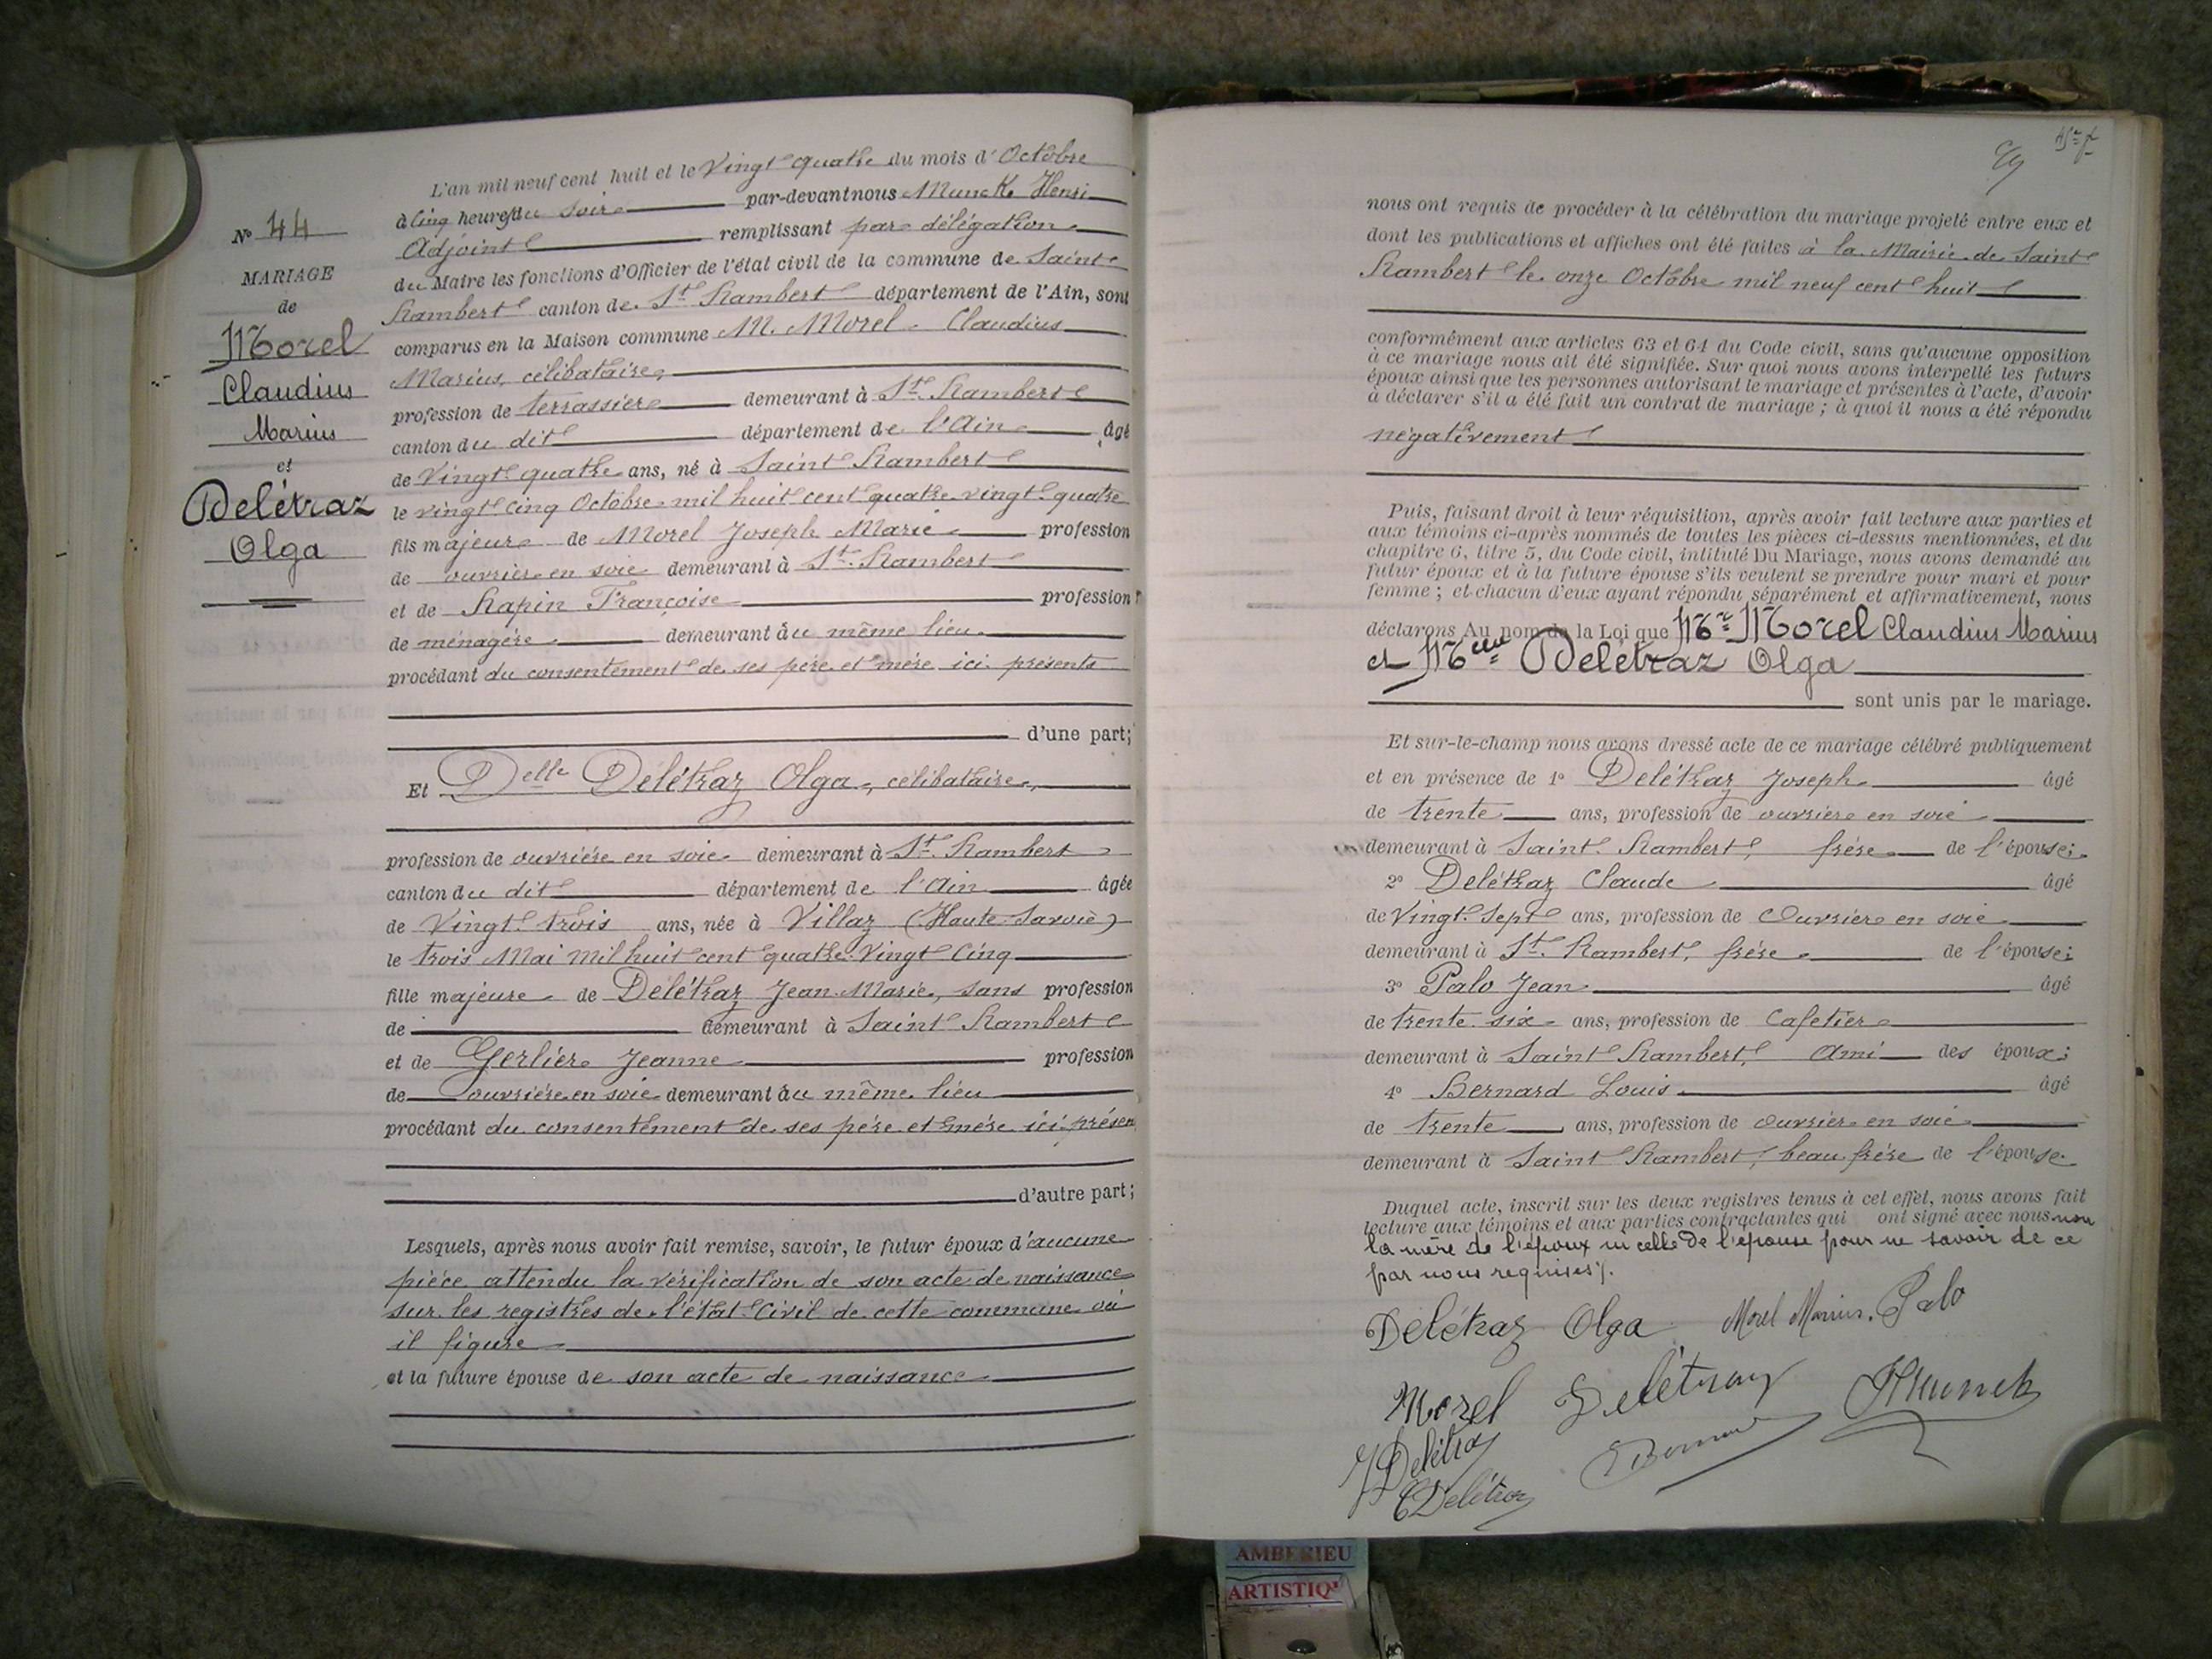 L'an mil neuf cent huit et le Vingt quatre du mois d'Octobre
à cinq heures du soir par-devant nous Munck Henri
Adjoint remplissant par délégation
du Maire les fonctions d'Officier de l'état civil de la commune de Saint
Rambert canton de St Rambert département de l'Ain, sont
comparus en la Maison commune M. Morel Claudius
Marius, célibataire,
profession de terrassier demeurant à St. Rambert
canton du dit département de l'Ain âgé
de Vingt quatre ans, né à Saint Rambert
le vingt cinq Octobre mil huit cent quatre vingt quatre
fils majeur de Morel Joseph Marie profession
de ouvrier en soie demeurant à St. Rambert
et de Rapin Françoise profession
de ménagère demeurant au même lieu
procédant du consentement de ses père et mère ici présents
d'une part;
Et Delle Delétraz Olga, célibataire,
profession de ouvrière en soie demeurant à St. Rambert
canton du dit département de l'Ain âgée
de Vingt trois ans, née à Villaz (Haute Savoie)
le trois Mai mil huit cent quatre Vingt Cinq
fille majeure de Delétraz Jean Marie, sans profession
de demeurant à Saint Rambert
et de Gerlier Jeanne profession
de ouvrière en soie demeurant au même lieu
procédant du consentement de ses père et mère ici présen
d'autre part;
Lesquels, après nous avoir fait remise, savoir, le futur époux d'aucune
pièce attendu la vérification de son acte de naissance
sur les registres de l'état Civil de cette commune où
il figure
et la future épouse de son acte de naissance
No 44
MARIAGE
de
Morel
Claudius
Marius
et
Delétraz
Olga
nous ont requis de procéder à la célébration du mariage projeté entre eux et
dont les publications et affiches ont été faites à la Mairie de Saint
Rambert le onze Octobre mil neuf cent huit
conformément aux articles 63 et 64 du Code civil, sans qu'aucune opposition
à ce mariage nous ait été signifiée. Sur quoi nous avons interpellé les futurs
époux ainsi que les personnes autorisant le mariage et présentes à l'acte, d'avoir
à déclarer s'il a été fait un contrat de mariage ; à quoi il nous a été répondu
négativement
Puis, faisant droit à leur réquisition, après avoir fait lecture aux parties et
aux témoins ci-après nommés de toutes les pièces ci-dessus mentionnées, et du
chapitre 6, titre 5, du Code civil, intitulé Du Mariage, nous avons demandé au
futur époux et à la future épouse s'ils veulent se prendre pour mari et pour
femme ; et chacun d'eux ayant répondu séparément et affirmativement, nous
déclarons Au nom de la Loi que Mr Morel Claudius Marius
et Melle Delétraz Olga
sont unis par le mariage.
Et sur-le-champ nous avons dressé acte de ce mariage célébré publiquement
et en présence de 1o Delétraz Joseph âgé
de trente ans, profession de ouvrier en soie
demeurant à Saint Rambert, frère de l'épouse;
2o Delétraz Claude âgé
de Vingt Sept ans, profession de Ouvrier en soie
demeurant à St. Rambert, frère de l'épouse;
3o Palo Jean âgé
de trente six ans, profession de Cafetier
demeurant à Saint Rambert, Ami des époux;
4o Bernard Louis âgé
de trente ans, profession de ouvrier en soie
demeurant à Saint Rambert, beau frère de l'épouse
Duquel acte, inscrit sur les deux registres tenus à cet effet, nous avons fait
lecture aux témoins et aux parties contractantes qui ont signé avec nous non
la mère de l'époux ni celle de l'épouse pour ne savoir de ce
par nous requises.
Delétraz Olga Morel Marius. Palo
Morel Delétraz HMunck
J Delétraz Bernard
C Delétraz
AMBERIEU
ARTISTIQ